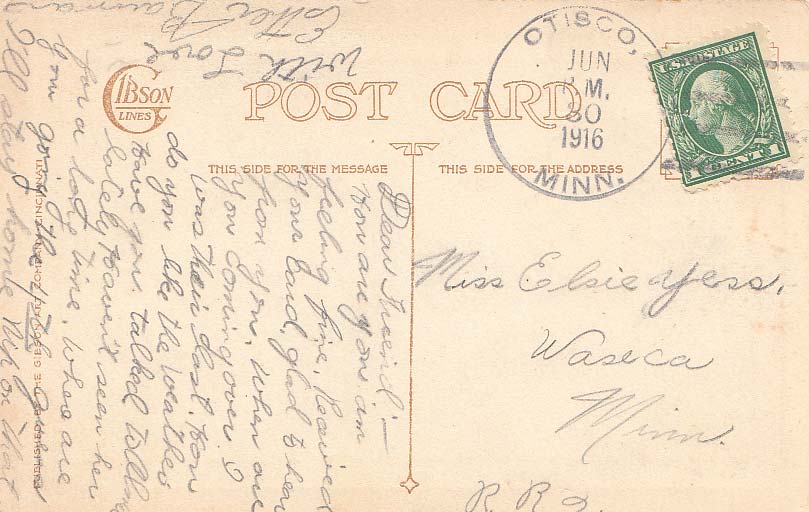 GIBSON
LINES
POST CARD
THIS SIDE FOR THE MESSAGE
THIS SIDE FOR THE ADDRESS
OTISCO,
JUN
P.M.
30
1916
MINN.
U.S. POSTAGE
1 CENT 1
Miss Elsie Yess,
Waseca
Minn.
R. R. 2.
Dear Freind:—
How are you, am
feeling fine, Received
your Card, glad to hear
from you. When are
you coming over? I
was their last. How
do you like the weather
Have you talked to
lately haven't seen her
for a long time. Where are
you going the 4th, I guess
I'll stay home Nip on that
With Love
Esther Bauman
PUBLISHED BY THE GIBSON ART COMPANY, CINCINNATI